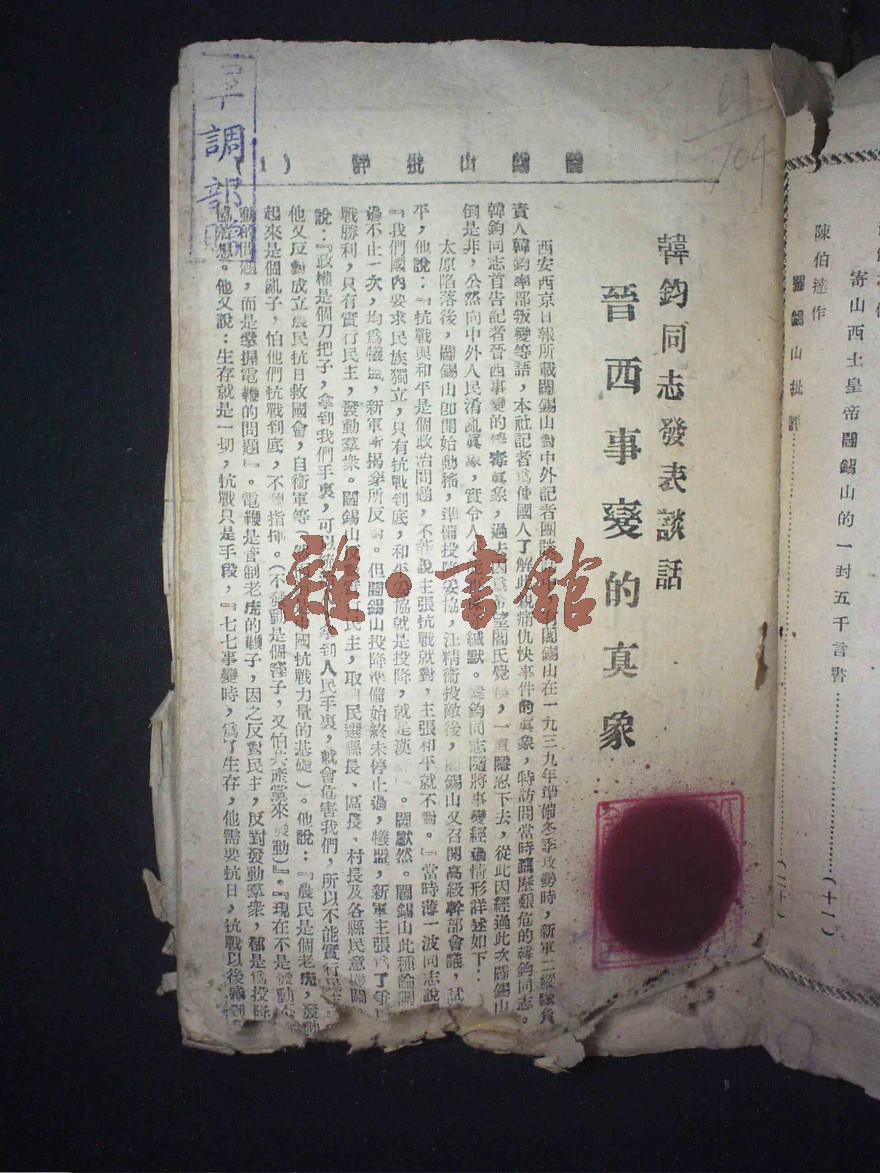 陳伯達作
閻錫山批評……(二十)
寄山西土皇帝閻錫山的一封五千言書……(十一)
軍調部
61
104
閻錫山批評 (1)
韓鈞同志發表談話
晉西事變的真象
西安西京日報所載閻錫山對中外記者團談話中,有閻錫山在一九三九年準備冬季攻勢時,新軍二縱隊負
責人韓鈞率部叛變等語,本社記者爲使國人了解此親痛仇快事件的真象,特訪問當時歷艱危的韓鈞同志。
韓鈞同志首告記者晉西事變的真象,過去因爲希望閻氏覺悟,一直隱忍下去,從此因經過此次閻錫山
倒是非,公然向中外人民淆亂真象,實令人不能緘默。韓鈞同志隨將事變經過情形詳述如下:
太原陷落後,閻錫山卽開始動搖,準備投降妥協,汪精衛投敵後,閻錫山又召開高級幹部會議,試
平,他說:『抗戰與和平是個政治問題,不能說主張抗戰就對,主張和平就不對。』當時薄一波同志說
『我們國內要求民族獨立,只有抗戰到底,和平妥協就是投降,就是漢奸』。閻默然。閻錫山此種論調
過不止一次,均爲犧盟,新軍所揭穿所反對。但閻錫山投降準備始終未停止過,犧盟,新軍主張爲了爭取
戰勝利,只有實行民主,發動羣衆。閻錫山反對實行民主,取消民選縣長、區長、村長及各縣民意機關
說:『政權是個刀把子,拿到我們手裏,可以 拿到人民手裏,就會危害我們,所以不能實行民主
他又反對成立農民抗日救國會,自衛軍等( 中國抗戰力量的基礎)。他說:『農民是個老虎,發動
起來是個亂子,怕他們抗戰到底,不聽指揮。(不發動是個窪子,又怕共產黨來發動)』。『現在不是發動不
動的問題,而是掌握電鞭的問題』。電鞭是管制老虎的鞭子,因之反對民主,反對發動羣衆,都是爲投降
協着想。他又說:生存就是一切,抗戰只是手段,『七七事變時,爲了生存,他需要抗日,抗戰以後感到
雜·書館